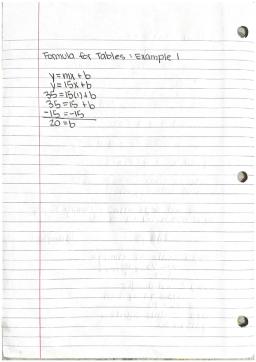 Formula for Tables : Example 1
y=mx+b
y=15x+b
35=15(1)+b
35=15+b
-15 =-15
20=b